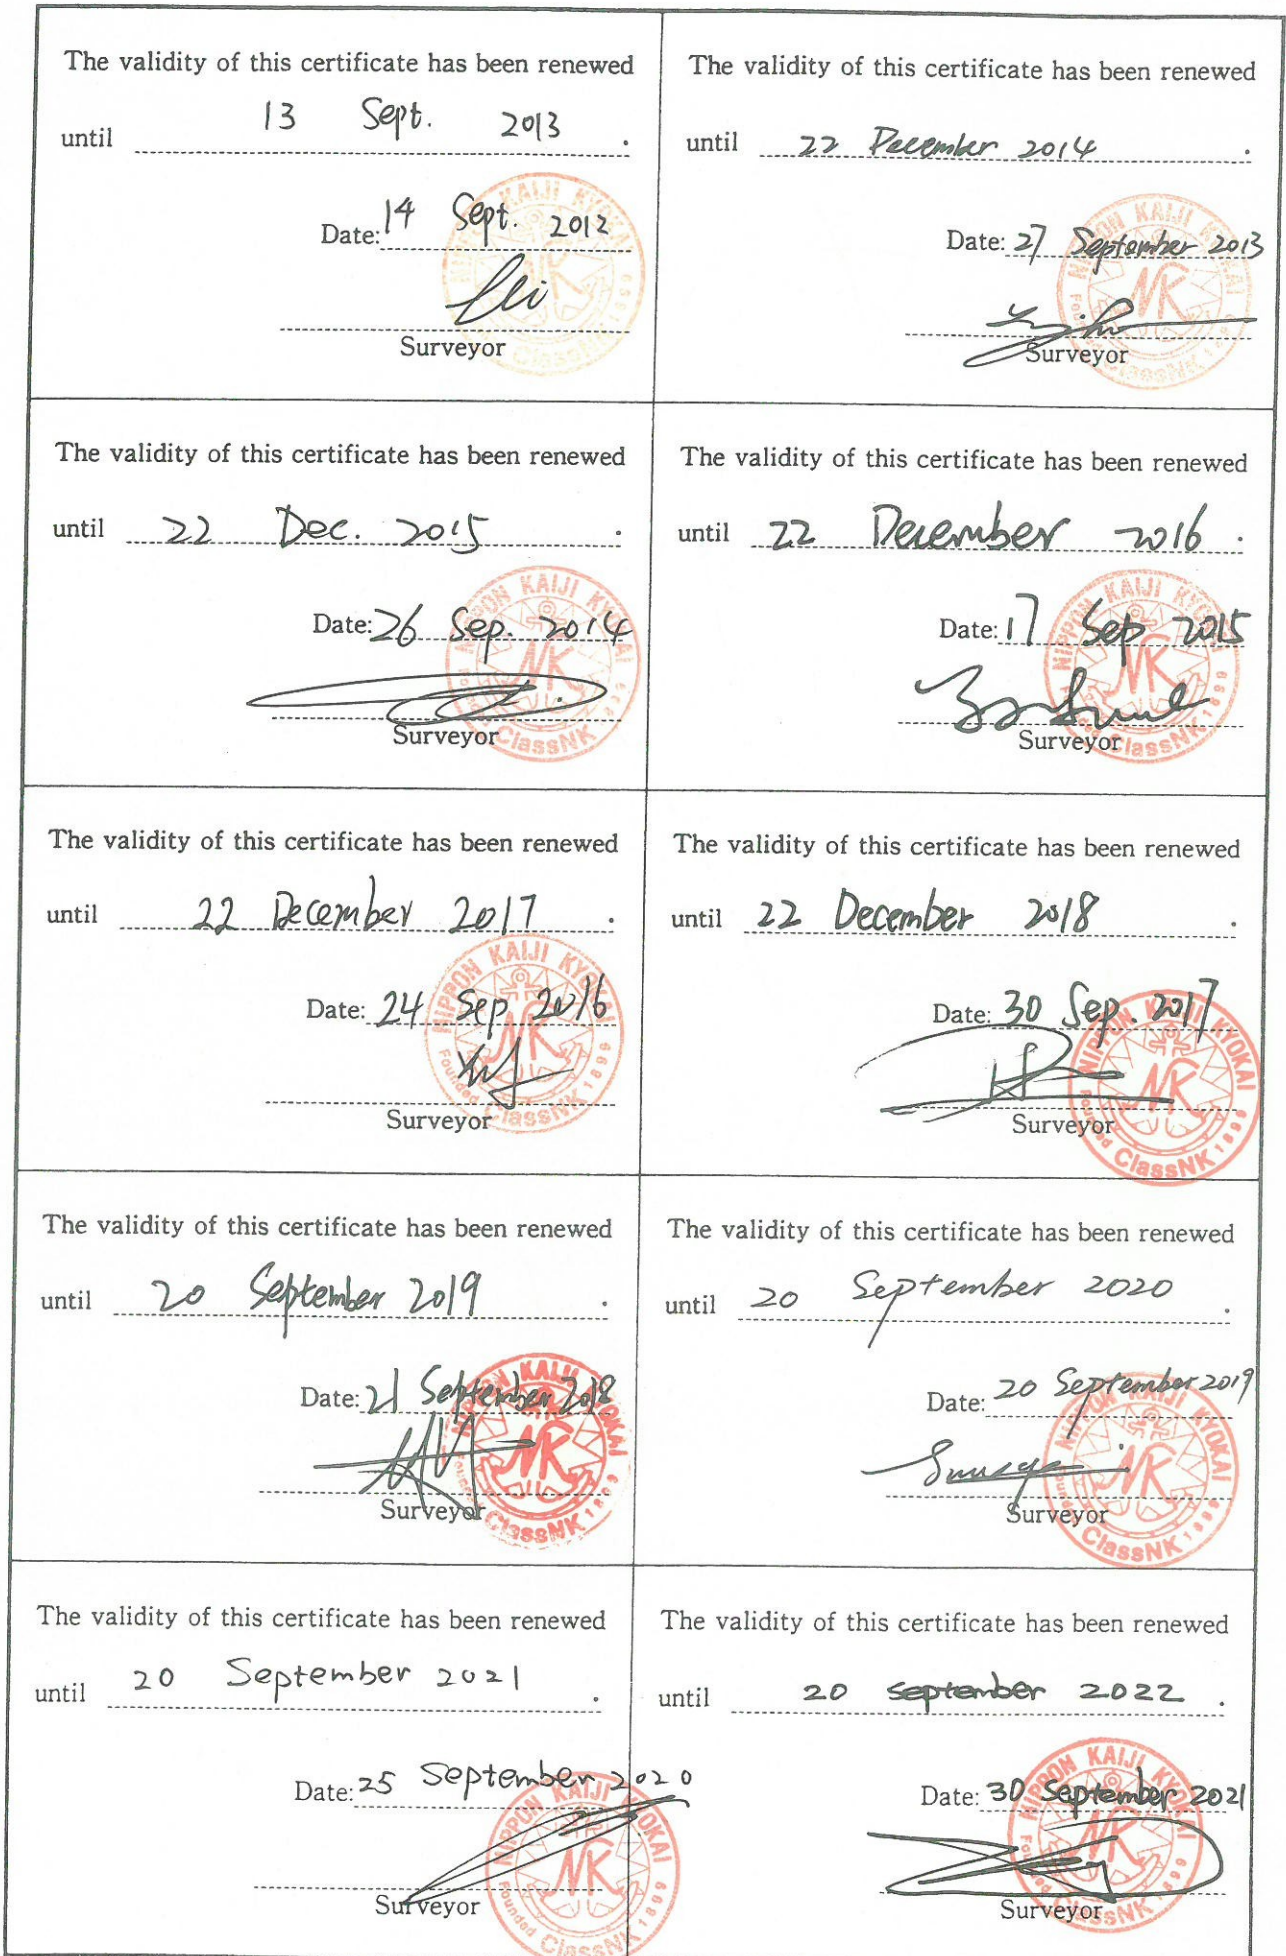 The validity of this certificate has been renewed
until 13 Sept. 2013 .
Date: 14 Sept. 2012
Surveyor
NIPPON KAIJI KYOKAI
ClassNK
The validity of this certificate has been renewed
until 22 December 2014 .
Date: 27 September 2013
Surveyor
NIPPON KAIJI KYOKAI
Founded ClassNK 1899
The validity of this certificate has been renewed
until 22 Dec. 2015 .
Date: 26 Sep. 2014
Surveyor
NIPPON KAIJI KYOKAI
ClassNK 1899
The validity of this certificate has been renewed
until 22 December 2016 .
Date: 17 Sep 2015
Surveyor
NIPPON KAIJI KYOKAI
ClassNK 1899
The validity of this certificate has been renewed
until 22 December 2017 .
Date: 24 Sep 2016
Surveyor
NIPPON KAIJI KYOKAI
Founded ClassNK 1899
The validity of this certificate has been renewed
until 22 December 2018 .
Date: 30 Sep. 2017
Surveyor
NIPPON KAIJI KYOKAI
Founded ClassNK 1899
The validity of this certificate has been renewed
until 20 September 2019 .
Date: 21 September 2018
Surveyor
NIPPON KAIJI KYOKAI
Founded ClassNK 1899
The validity of this certificate has been renewed
until 20 September 2020 .
Date: 20 September 2019
Surveyor
NIPPON KAIJI KYOKAI
Founded ClassNK 1899
The validity of this certificate has been renewed
until 20 September 2021 .
Date: 25 September 2020
Surveyor
NIPPON KAIJI KYOKAI
Founded ClassNK 1899
The validity of this certificate has been renewed
until 20 september 2022 .
Date: 30 September 2021
Surveyor
NIPPON KAIJI KYOKAI
Founded ClassNK 1899